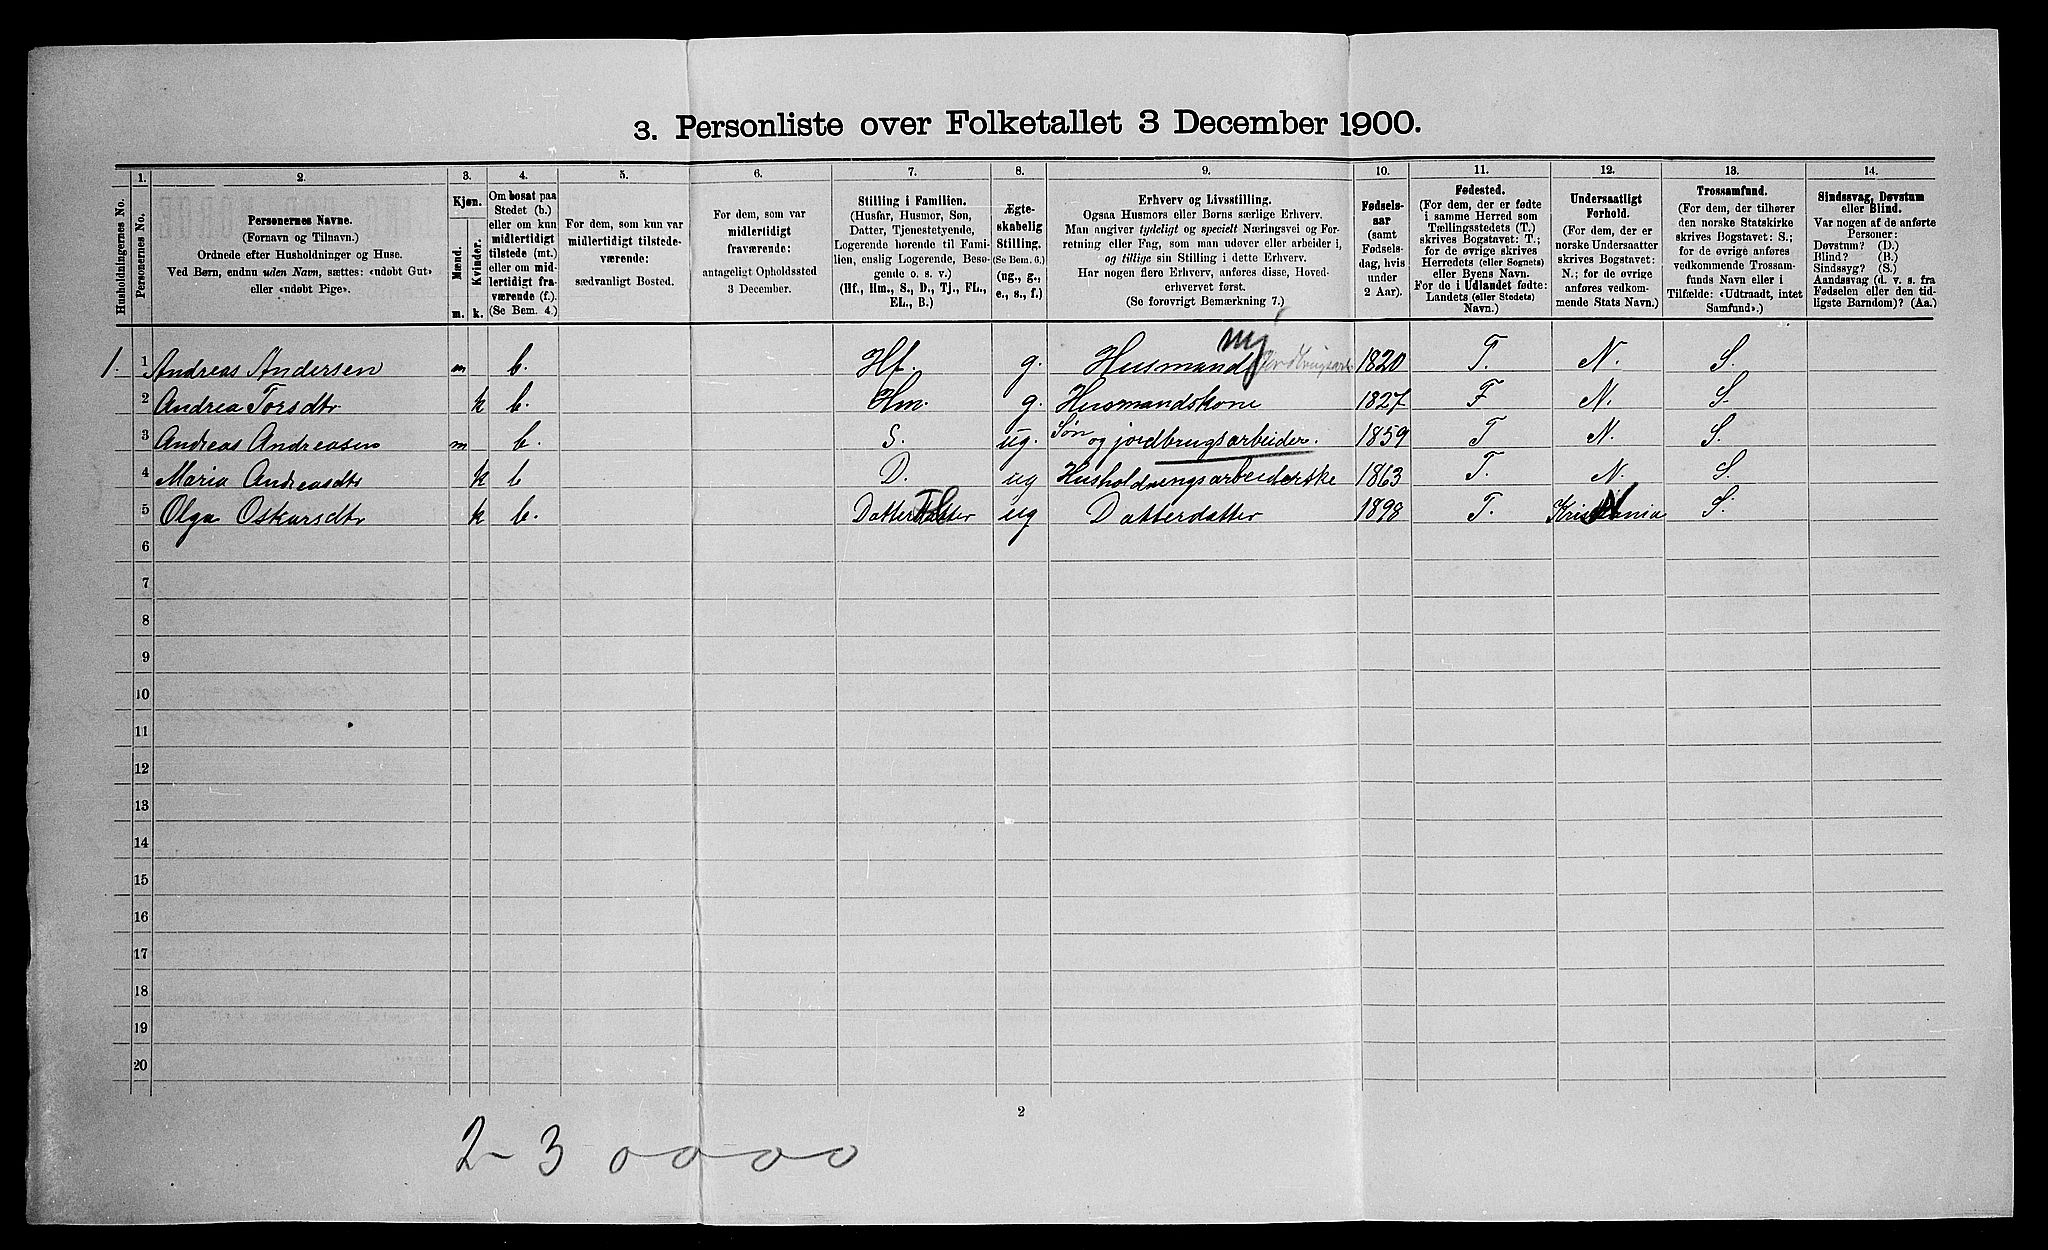 3. Personliste over Folketallet 3 December 1900.
Husholdningernes No.
1.
Personernes No.
2.
Personernes Navne.
(Fornavn og Tilnavn.)
Ordnede efter Husholdninger og Huse.
Ved Børn, endnu uden Navn, sættes: «udøbt Gut»
eller «udøbt Pige».
3.
Kjøn.
Mænd.
Kvinder.
m. k.
4.
Om bosat paa
Stedet (b.)
eller om kun
midlertidigt
tilstede (mt.)
eller om mid-
lertidigt fra-
værende (f.).
(Se Bem. 4.)
5.
For dem, som kun var
midlertidigt tilstede-
værende:
sædvanligt Bosted.
6.
For dem, som var
midlertidigt
fraværende:
antageligt Opholdssted
3 December.
7.
Stilling i Familien.
(Husfar, Husmor, Søn,
Datter, Tjenestetyende,
Logerende hørende til Fami-
lien, enslig Logerende, Besø-
gende o. s. v.)
(Hf., Hm., S., D., Tj., FL.,
EL., B.)
8.
Ægte-
skabelig
Stilling.
(Se Bem. 6.)
(ug., g.,
e., s., f.)
9.
Erhverv og Livsstilling.
Ogsaa Husmors eller Børns særlige Erhverv.
Man angiver tydeligt og specielt Næringsvei og For-
retning eller Fag, som man udøver eller arbeider i,
og tillige sin Stilling i dette Erhverv.
Har nogen flere Erhverv, anføres disse, Hoved-
erhvervet først.
(Se forøvrigt Bemærkning 7.)
10.
Fødsels-
aar
(samt
Fødsels-
dag, hvis
under
2 Aar).
11.
Fødested.
(For dem, der er fødte
i samme Herred som
Tællingsstedets (T.)
skrives Bogstavet: T.;
for de øvrige skrives
Herredets (eller Sognets)
eller Byens Navn.
For de i Udlandet fødte:
Landets (eller Stedets)
Navn.)
12.
Undersaatligt
Forhold.
(For dem, der er
norske Undersaatter
skrives Bogstavet:
N.; for de øvrige
anføres vedkom-
mende Stats Navn.)
13.
Trossamfund.
(For dem, der tilhører
den norske Statskirke
skrives Bogstavet: S.;
for de øvrige anføres
vedkommende Trossam-
funds Navn eller i
Tilfælde: «Udtraadt, intet
Samfund».)
14.
Sindssvag, Døvstum
eller Blind.
Var nogen af de anførte
Personer:
Døvstum? (D.)
Blind? (B.)
Sindssyg? (S.)
Aandssvag (d. v. s. fra
Fødselen eller den tid-
ligste Barndom)? (Aa.)
1. 1 Andreas Andersen m b. Hf. g. Husmand Jordbrugsarb. 1820 T. N. S.
2 Andrea Torsdtr k b. Hm. g. Husmandskone 1827 F N. S.
3 Andreas Andreasen m b. S. ug. Søn og jordbrugsarbeider. 1859 T N. S.
4 Maria Andreasdtr k b D. ug Husholdningsarbeiderske 1863 T. N. S.
5 Olga Oskarsdtr k b. Datterdatter ug Datterdatter 1898 T. Kristiania N S.
6
7
8
9
10
11
12
13
14
15
16
17
18
19
20
2
2-3 0 0 0 0